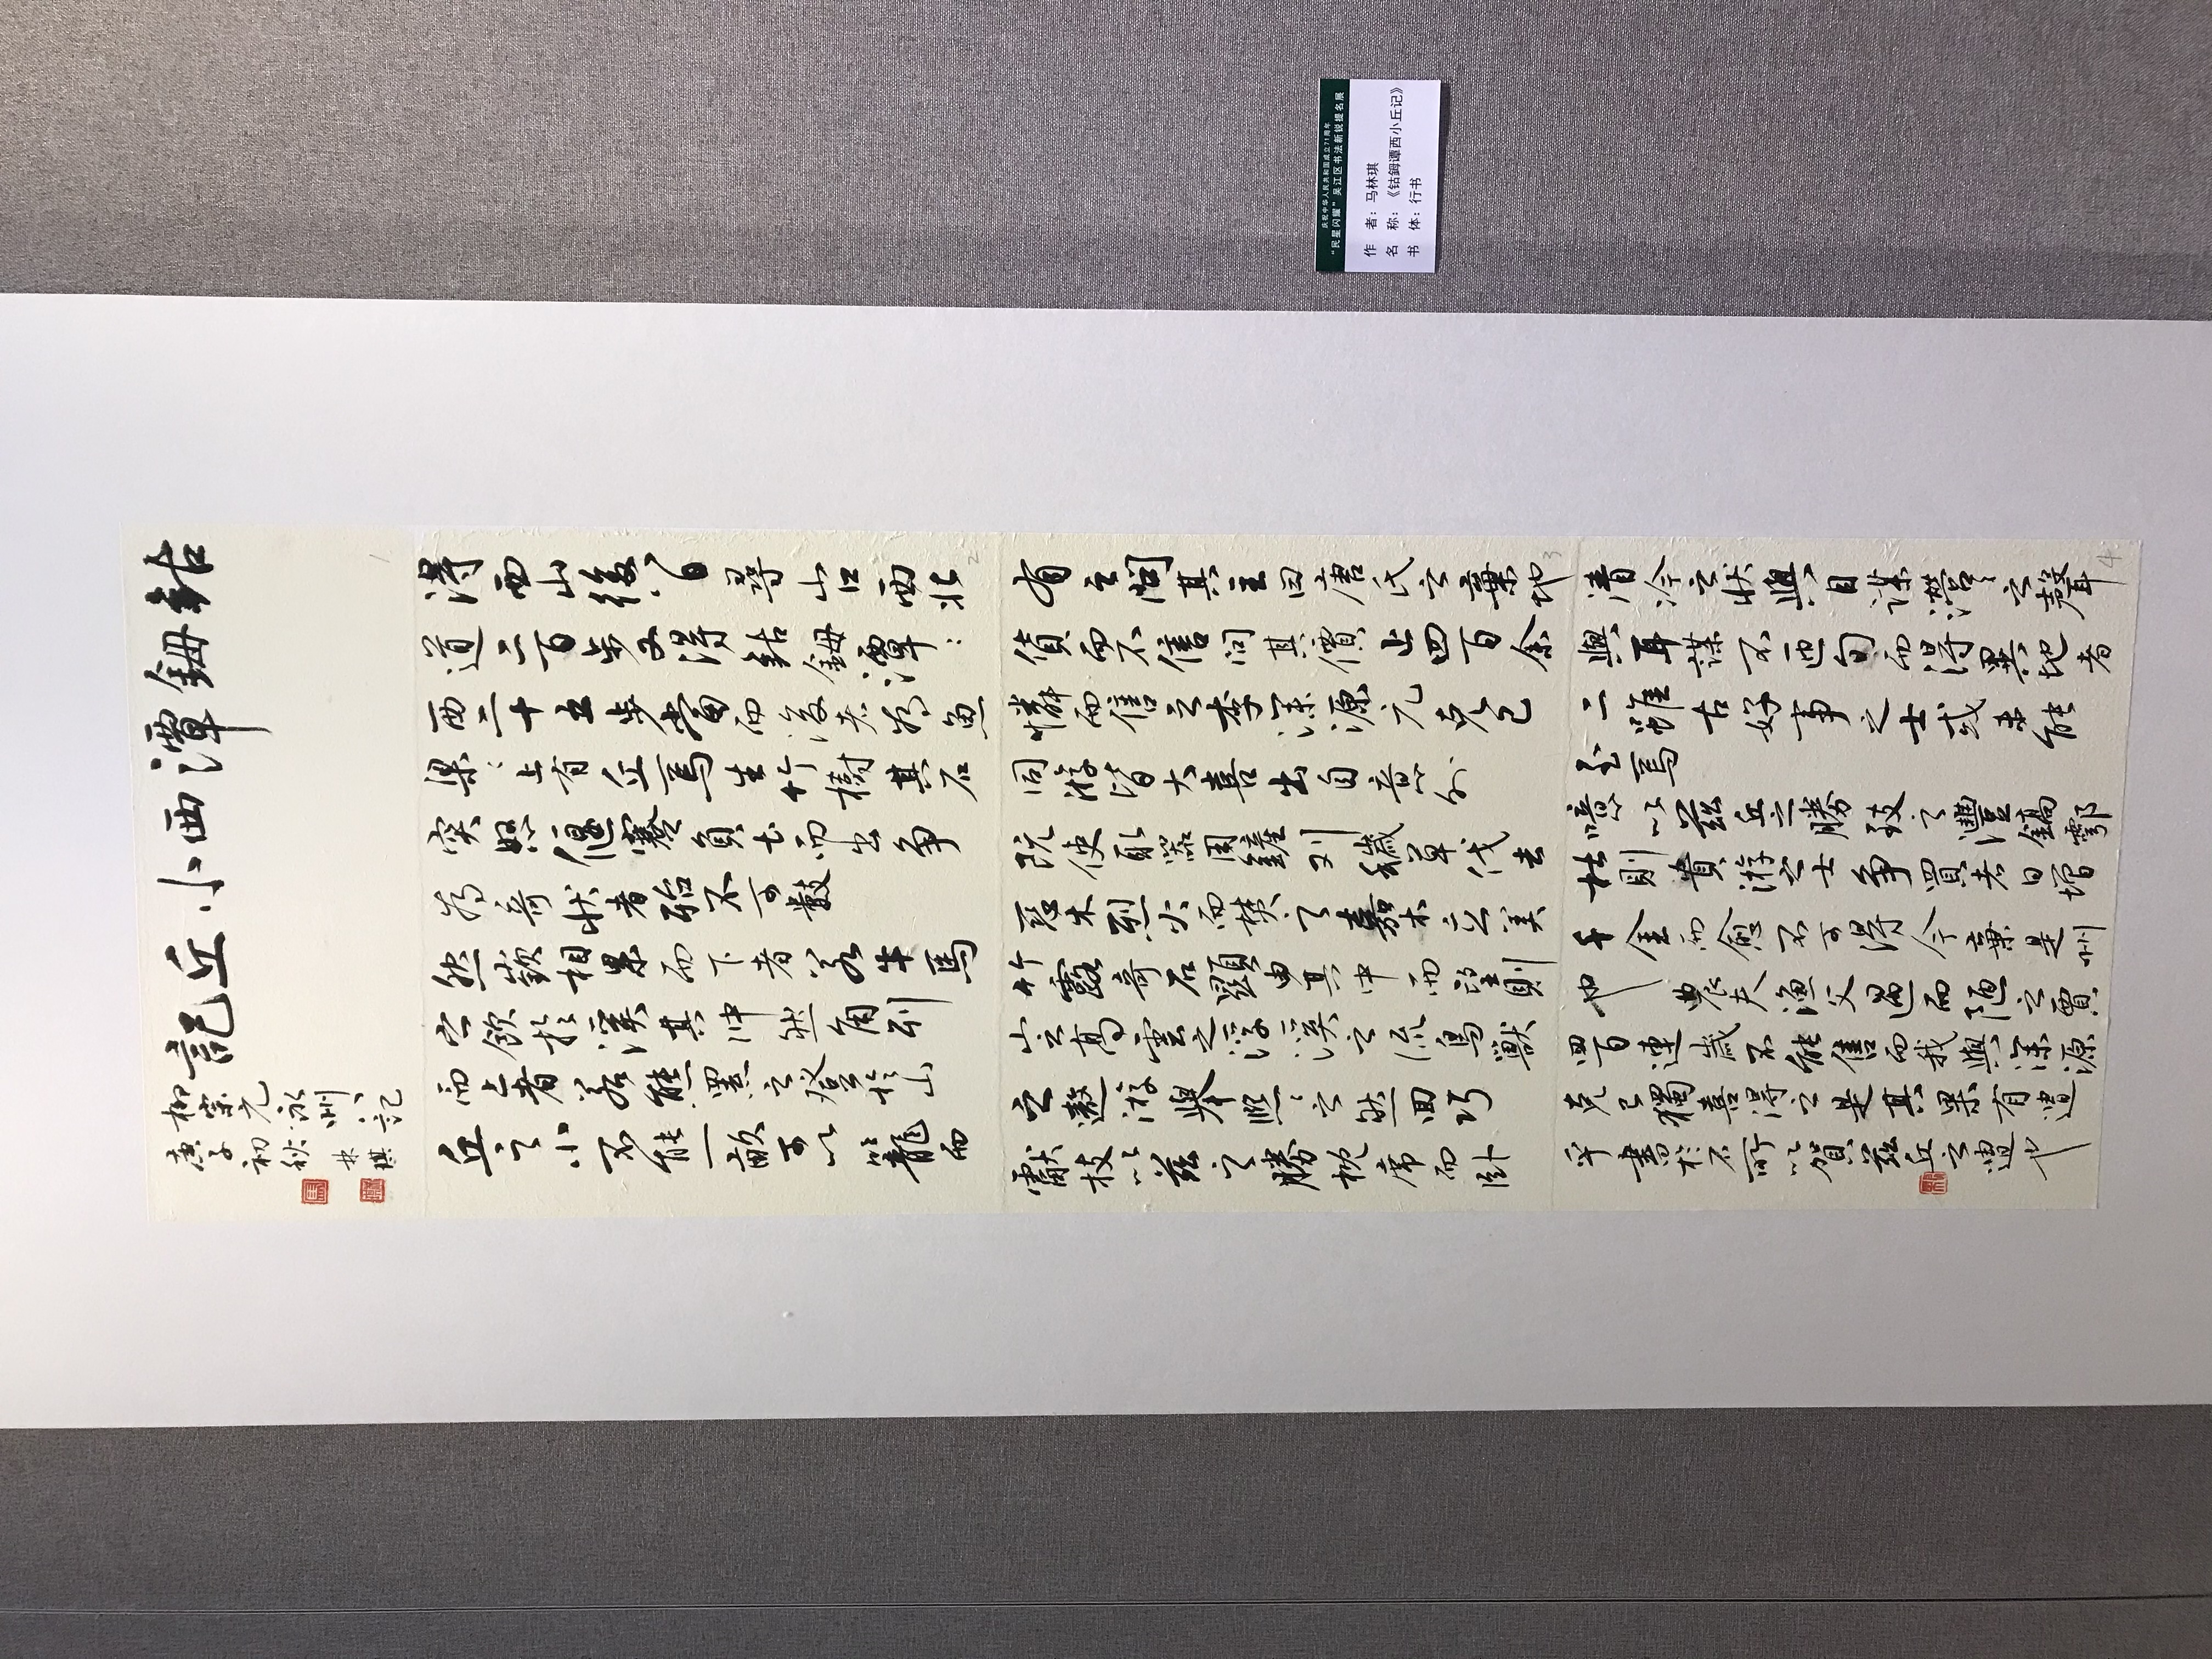 鈷鉧潭西小丘記
柳宗元永州八記
庚子初秋 林琪
馬
1
得西山後八日尋山口西北
道二百步又得鈷鉧潭：
西二十五步當而浚者為魚
梁：上有丘焉生竹樹其石
突怒偃蹇負土而出爭
為奇狀者殆不可數
然嶔相累而下者若牛馬
之飲於溪其沖然角列
而上者若熊羆之登於山
丘之小不能一畝可以籠而
2
有之問其主曰唐氏之棄地
貨而不售問其價止四百余
憐而售之李深源元克己
同游皆大喜出自意外
既使取器用鏟刈穢草伐去
惡木烈火而焚之嘉木立美
竹露奇石顯由其中而望則
山之高雲之浮溪之流鳥獸
之遨游舉熙：之然回巧
獻枝以茲之勝枕席而卧
3
清泠之狀與目謀瀯：之聲
與耳謀不匝旬而得異地者
二雖古好事之士或未能
至焉
噫以茲丘之勝致之灃鎬鄠
杜則貴游之士爭買者日增
千金而愈不可得今棄是州
也農夫漁父過而陋之賈
四百連歲不能售而我與深源
克己獨喜得之是其果有遭
乎書於石所以賀茲丘之遭也
4
庆祝中华人民共和国成立71周年
“民星闪耀”吴江区书法新锐提名展
作 者：马林琪
名 称：《钴鉧谭西小丘记》
书 体：行书